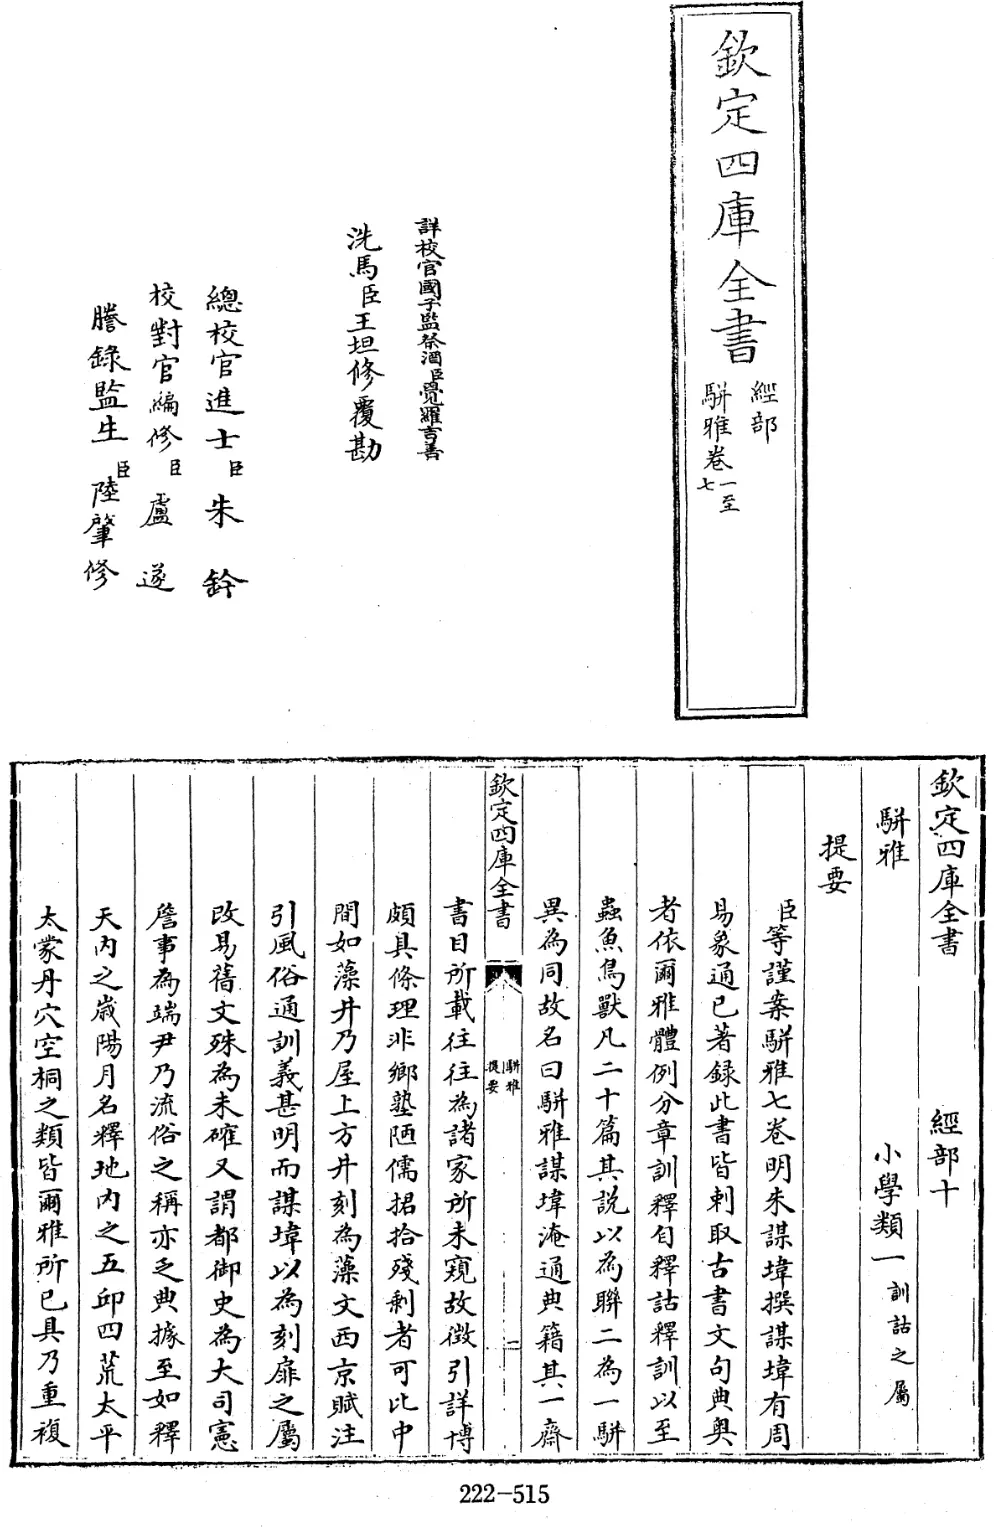 欽定四庫全書
經部
駢雅卷一至
七
詳校官國子監祭酒臣覺羅吉善
洗馬臣王坦修覆勘
總校官進士臣朱鈐
校對官編修臣盧遂
謄錄監生臣陸肇修
欽定四庫全書　經部十
駢雅　小學類一訓詁之屬
提要
臣等謹案駢雅七卷明朱謀㙔撰謀㙔有周
易象通已著録此書皆刺取古書文句典奥
者依爾雅體例分章訓釋自釋詁釋訓以至
蟲魚鳥獸凡二十篇其說以為聯二為一駢
異為同故名曰駢雅謀㙔淹通典籍其一齋
欽定四庫全書
駢雅
提要
一
書目所載往往為諸家所未窺故徵引詳博
頗具條理非鄉塾陋儒捃拾殘剩者可比中
間如藻井乃屋上方井刻為藻文西京賦注
引風俗通訓義甚明而謀㙔以為刻扉之屬
改易舊文殊為未確又謂都御史為大司憲
詹事為端尹乃流俗之稱亦乏典據至如釋
天内之歲陽月名釋地内之五邱四荒太平
太蒙丹穴空桐之類皆爾雅所已具乃重複
222-515